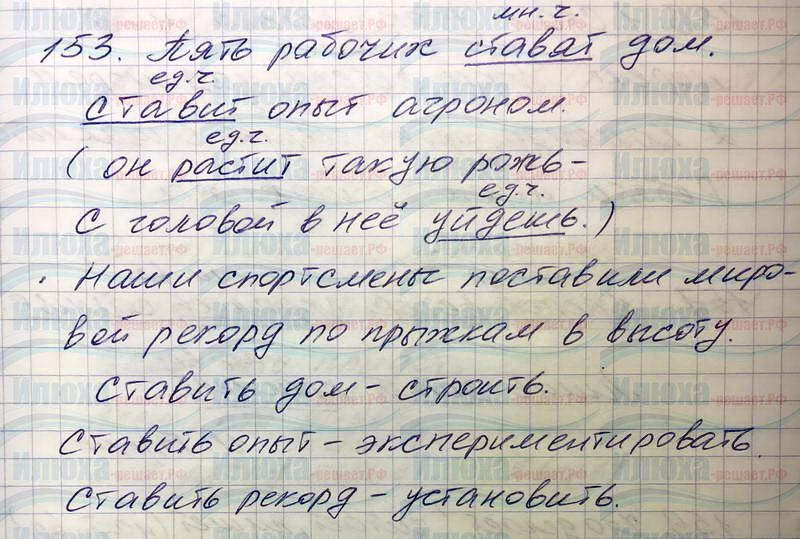 мн.ч.
153. Пять рабочих ставят дом.
ед.ч.
ставит опыт агроном.
ед.ч.
(он растит такую рожь-
ед.ч.
С головой в неё уйдешь.)
. Наши спортсмены поставили миро-
вой рекорд по прыжкам в высоту.
Ставить дом - строить.
Ставить опыт - экспериментировать.
Ставить рекорд - установить.